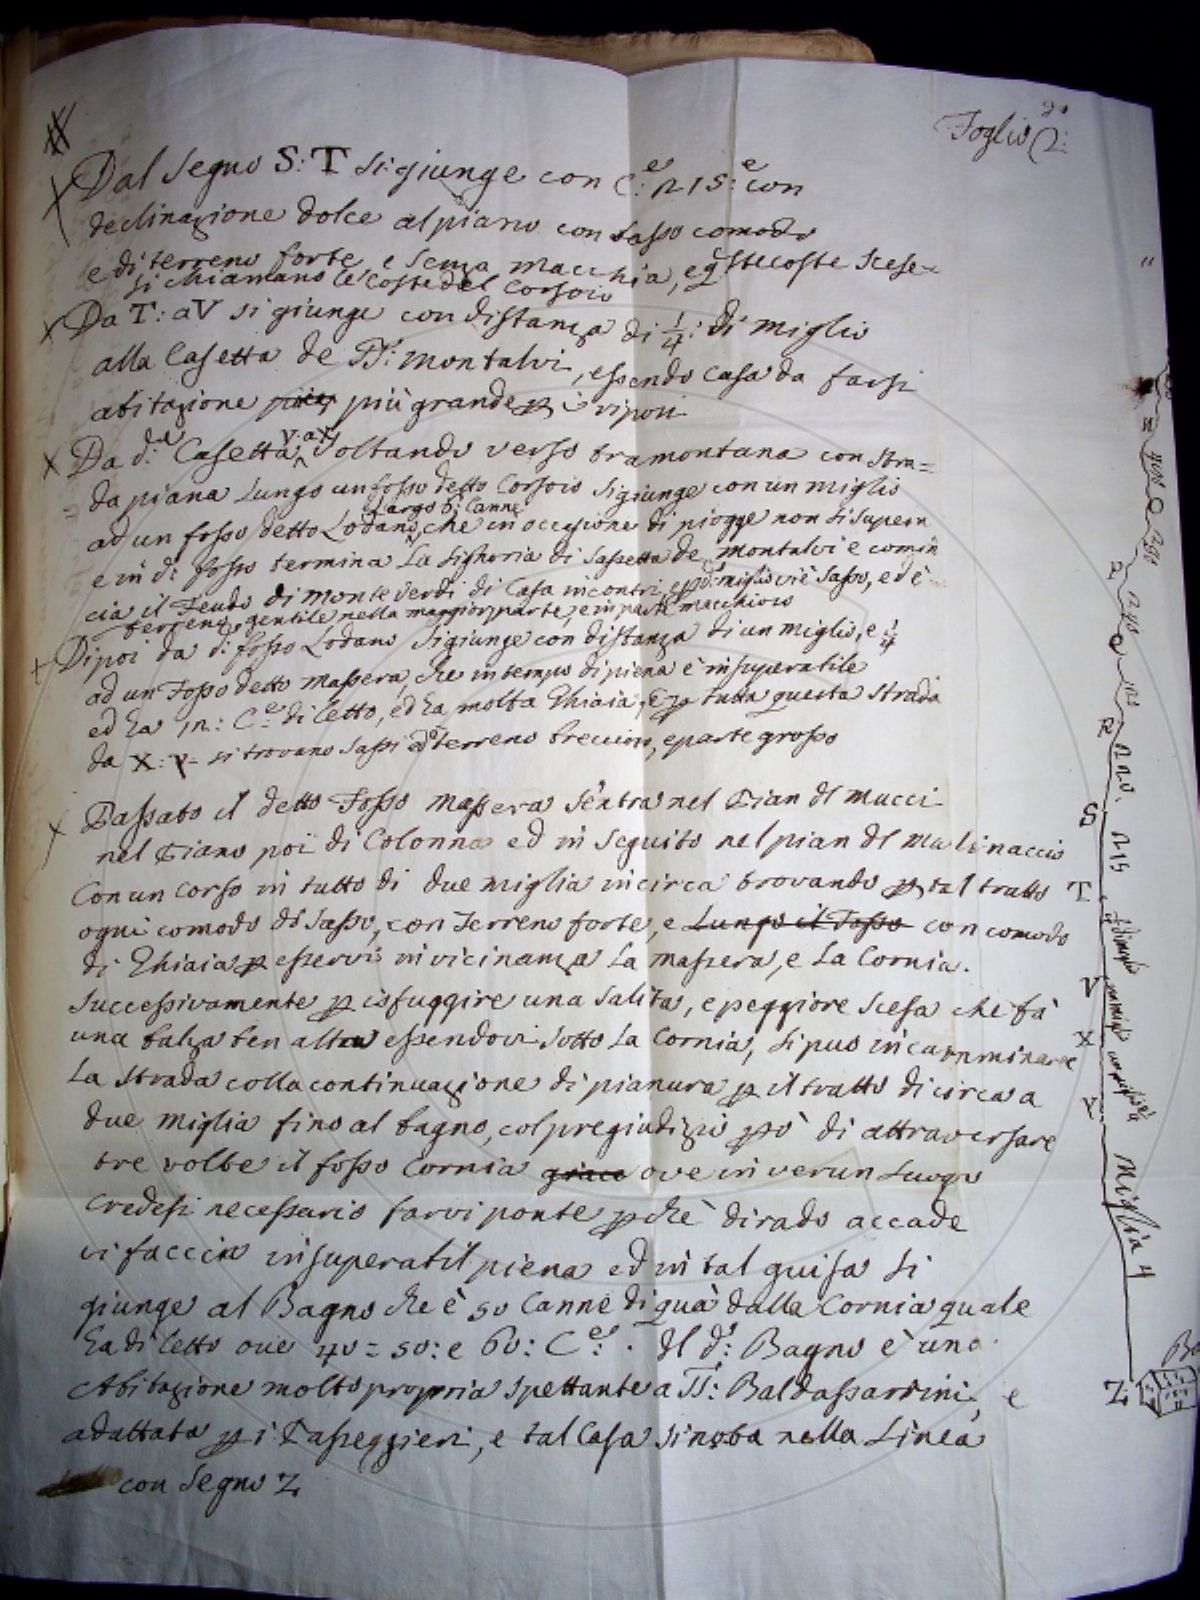 Foglio 2:
Dal Segno S: T si giunge con C:e n 15: e con
declinazione dolce al piano con sasso comodo
e di terreno forte e senza macchia, e q:ste coste scese=
si chiamano le Coste del Corsoio
Da T: a V si giunge con distanza di 1/4: di miglio
alla Casetta de SS:ri Montalvi, essendo casa da farsi
abitazione più grande p i
Da d:a Casetta V: a X voltando verso tramontana con stra=
da piana lungo un fosso detto Corsoio si giunge con un miglio
ad un fosso detto Lodano, largo 6: Canne che in occasione di piogge non si supera
e in d:o fosso termina La Signoria di Sassetta de Montalvi e comin
cia il Feudo di Monte Verdi di Casa Incontri, e p d:o miglio vi è Sasso, ed è
terreno gentile nella maggior parte, e in parte macchioso
Di poi da d:o fosso Lodano si giunge con distanza di un miglio, e 1/4
ad un Fosso detto Massera, che in tempo di piena è insuperabile
ed ha 12: C:e di letto, ed ha molta Ghiaia, e p tutta questa strada
da X: Y si trovano Sassi ed terreno breccioso, e parte grosso
Passato il detto Fosso Massera s'entra nel Pian dl Mucci
nel Piano poi di Colonna ed in seguito nel pian dl Mulinaccio
Con un corso in tutto di due miglia incirca trovando p tal tratto
ogni comodo di Sasso, con Terreno forte, e Lungo il Fosso con comodo
di Ghiaia p esservi in vicinanza La Massera, e La Cornia.
Successivamente p isfuggire una Salita, e peggiore Scesa che fà
una balza ben alta essendovi sotto La Cornia, si può incamminare
La Strada colla continuazione di pianura p il tratto di circa a
due miglia fino al bagno, col pregiudizio pò di attraversare
tre volte il fosso Cornia ove in verun Luogo
credesi necessario farvi ponte p chè di rado accade
vi faccia insuperabil piena ed in tal guisa si
giunge al Bagno che è 50 Canne di quà dalla Cornia quale
ha di letto ove 40= 50: e 60: C:e. Il d:o Bagno è una
Abitazione molto propria spettante a SS:ri Baldassarrini, e
adattata p i Passeggieri, e tal Casa si nota nella Linea
con Segno Z
P
Q
R
n 20.
S
n 15
T
1/4 di miglio
V
un miglio
X
un miglio e 1/4
Y
Miglia 4
Z
Ba